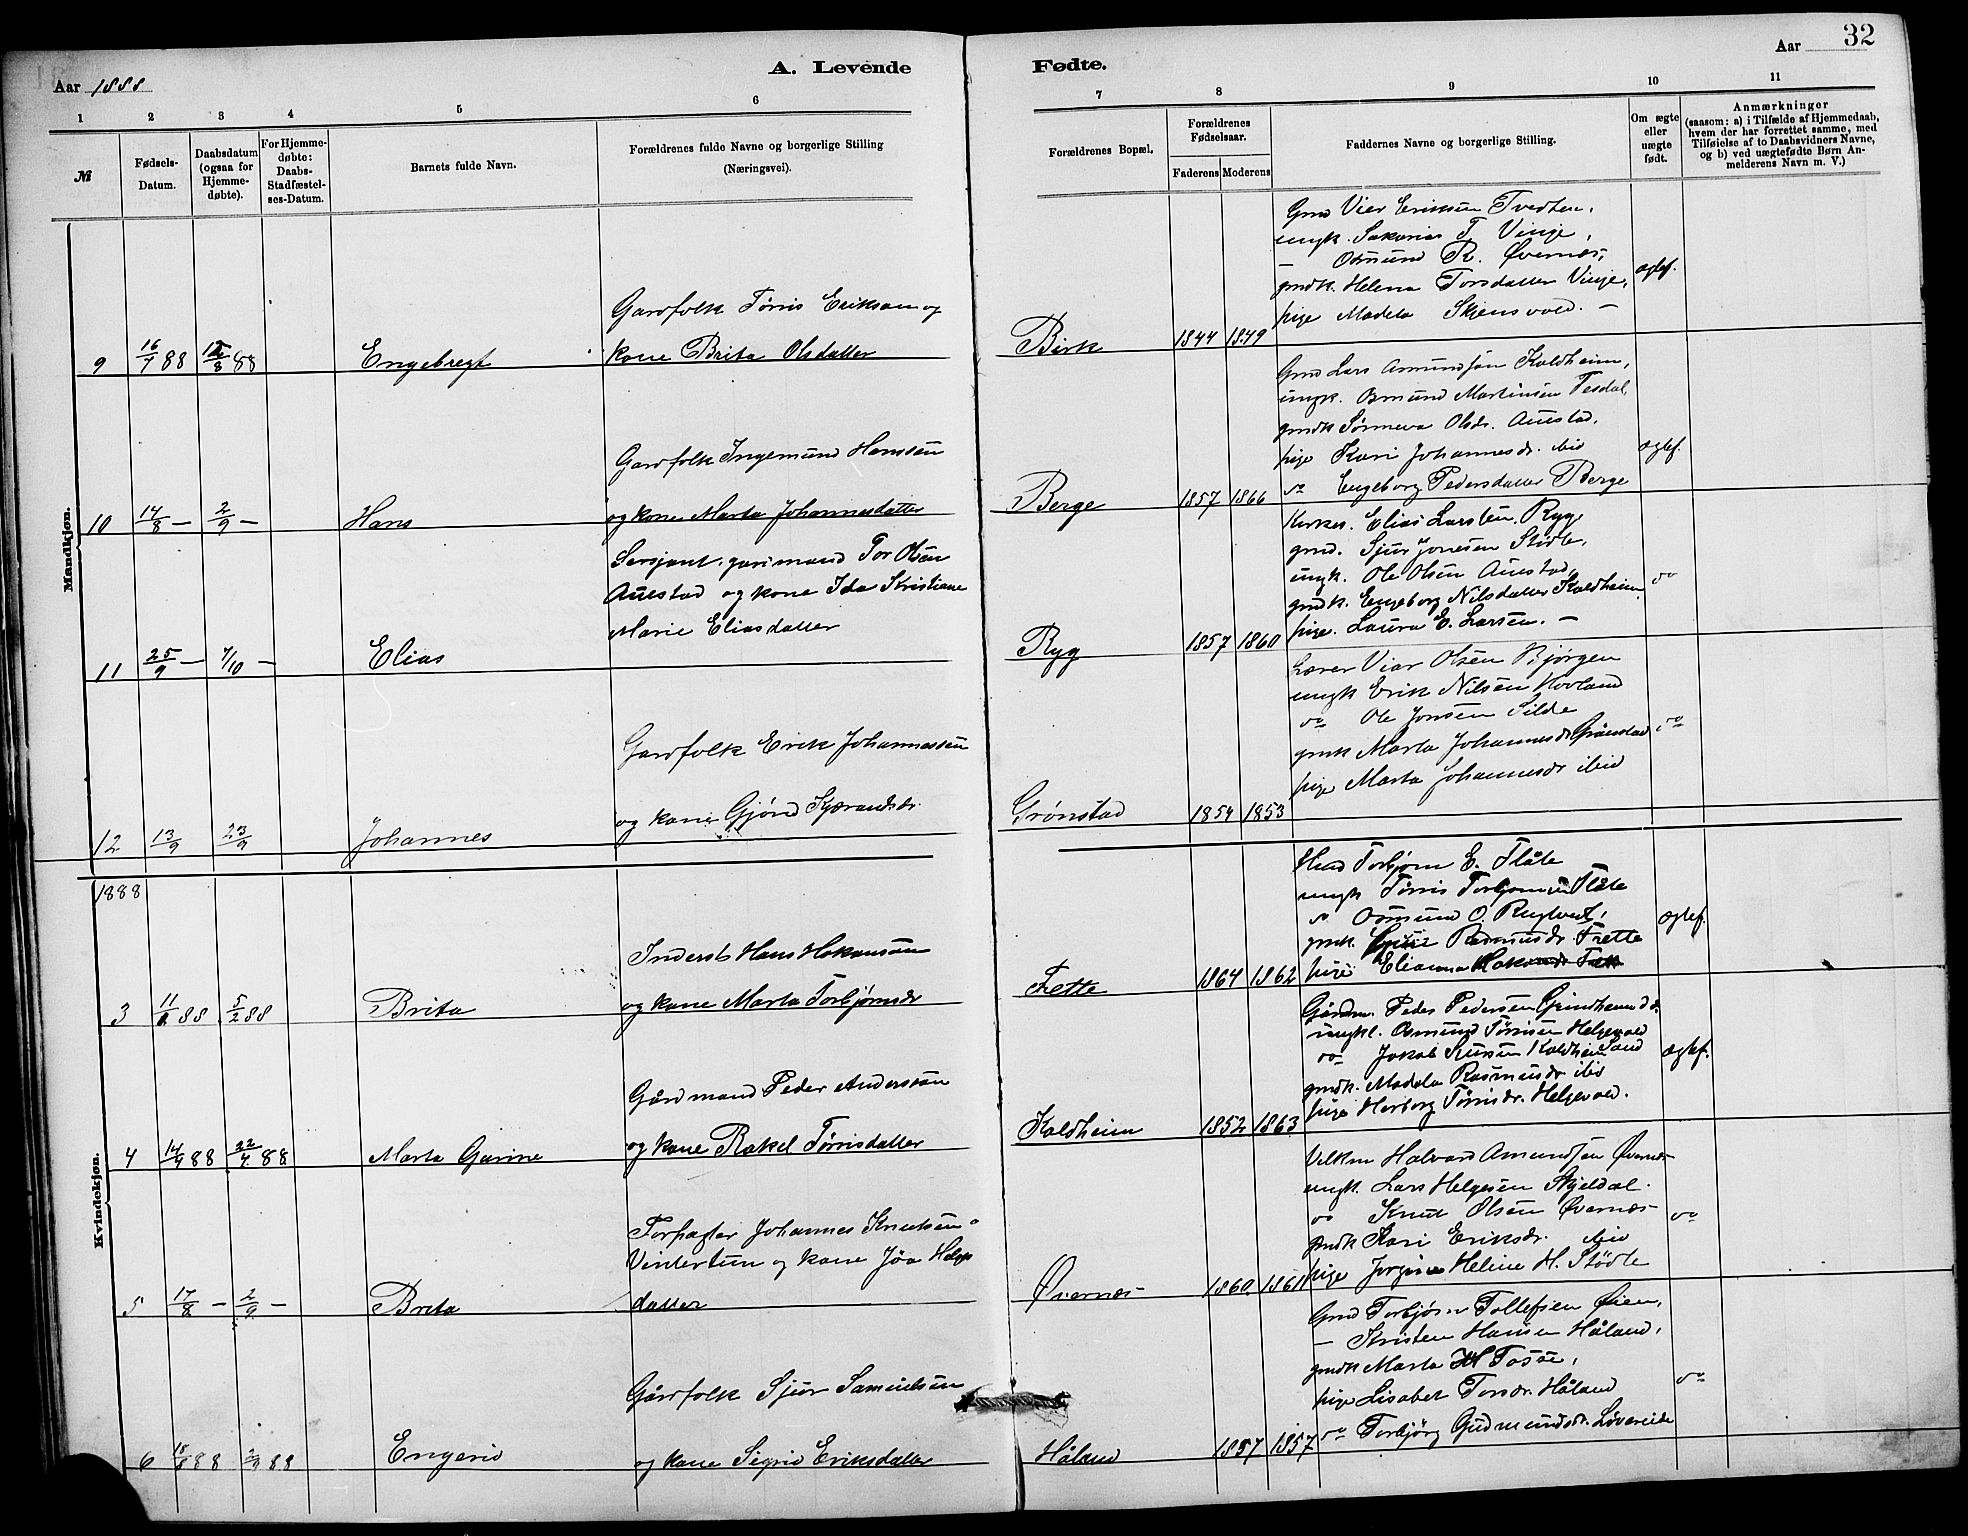 Aar 1888
A. Levende
Fødte.
Aar
32
1 2 3 4 5 6 7 8 9 10 11
№
Fødsels-
Datum.
Daabsdatum
(ogsaa for
Hjemme-
døbte).
For Hjemme-
døbte:
Daabs-
Stadfæstel-
ses-Datum.
Barnets fulde Navn.
Forældrenes fulde Navne og borgerlige Stilling
(Næringsvei).
Forældrenes Bopæl.
Forældrenes
Fødselsaar.
Faderens Moderens
Faddernes Navne og borgerlige Stilling.
Om ægte
eller
uægte
født.
Anmærkninger
(saasom: a) i Tilfælde af Hjemmedaab,
hvem der har forrettet samme, med
Tilføielse af to Daabsvidners Navne,
og b) ved uægtefødte Børn An-
melderens Navn m. V.)
Mandkjøn.
9 16/7 88 88 Engebregt
Gardfolk Tørris Eriksen og
kone Brita Olsdatter
Birk 1844 1849
Gmd Vier Eriksen Tvedten,
ungk. Sakarias T. Vinje,
— Osmund R. Øvernæs,
gmdk. Helena Torsdatter Vinje,
pige Madela Skjensvold. —
ægtef.
10 14/8 — 2/9 — Hans
Gardfolk Ingemund Hanssen
og kone Marta Johannesdatter
Berge 1857 1866
Gmd Lars Amundsøn Koldheim,
ungk. Osmund Martinsen Tesdal,
gmdk Sønneva Olsdr. Austad,
pige Kari Johannesdr. ibid
do Engeborg Pedersdatter Berge
ægtef.
11 25/9 — 7/10 — Elias
Sersjant, garmand Tor Olsen
Austad og kone Ida Kristiane
Marie Eliasdatter
Ryg 1857 1860
Kirkes. Elias Larsen Ryg
gmd. Sjur Jonesen Stidle,
ungk. Ole Olsen Austad,
gmdk. Engeborg Nilsdatter Koldheim,
pige. Laura E. Larsen. —
do
12 13/9 23/9 Johannes
Gardfolk Erik Johannessen
og kone Gjørid
Grønstad 1854 1853
Lærer Viar Olsen Bjørgen
ungk Erik Nilsen Hovland
do Ole Jonsen Silde
gmk Marta Johannesdr Grønstad
pige Marta Johannesdr ibid
do
Kvindekjøn.
1888
3 11/1 88 5/2 88 Brita
Inderst Hans Hokansøn
og kone Marta Torbjørnsdr
Frette 1864 1862
Torbjørn E. Flåte
ungk Tørris Torbjørnsen Flåte
do Osmund O.
gmk. Rasmusdr. Frette
pige Elianna
ægtef.
4 14/4 88 22/4 88 Marta Gurine
Gårdmand Peder Andersøn
og kone Rakel Tørrisdatter
Koldheim 1852 1863
Gårdm. Peder Pedersen Grindheim
ungkl. Osmund Tørrisen Helgevold
do Jakob Koldheim Sand
gmdk. Madela Rasmusdr ibid
pige Herborg Tørrisdr. Helgevold.
ægtef.
5 17/8 — 2/9 — Brita
Forpagter Johannes Knutsen
Vintertun og kone Jøa Helge
datter
Øvernæs 1860 1861
Halvard Amundsøn Øvernæs
ungk. Lars Helgesen Skjeldal.
do Knut Olsen Øvernæs
gmdk Kari Eriksdr. ibid
pige Jorgine Heline H. Stødle
do
6 18/8 88 2/9 88 Engerid
Gårdfolk Sjur Samuelsen
og kone Sigrid Eriksdatter
Håland 1857 1857
Gmd Torbjørn Tollefsen Øien,
— Kristen Hansen Håland,
gmdk Marta H Fosse,
pige Lisabet Torsdr. Håland
do Torbjørg Gudmundsdr. Løvereide
do